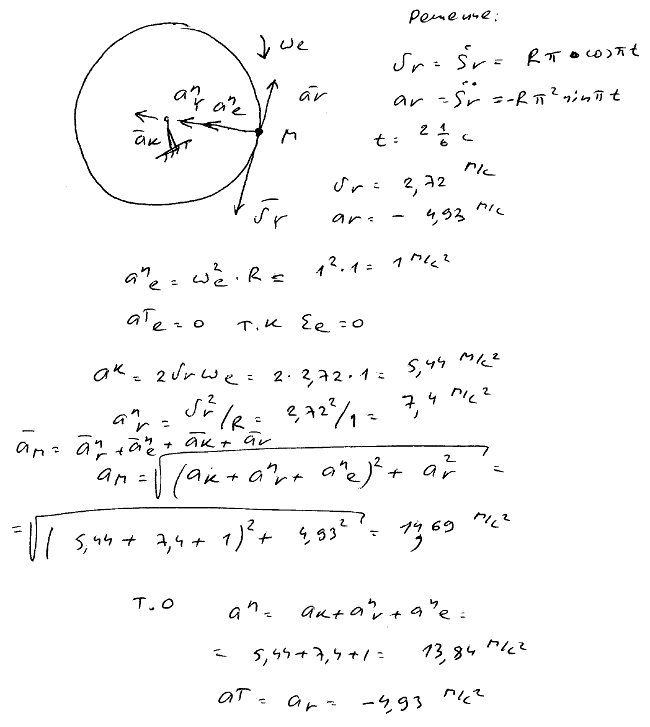 Решение:
ωe
ār
aⁿr aⁿe
āк
M
v̄r
vr = Ṡr = Rπ • cosπt
ar = S̈r = -Rπ² sinπt
t = 2 1/6 c
vr = 2,72 м/с
ar = - 4,93 м/с
aⁿe = ωe² · R = 1² · 1 = 1 м/с²
aτe = 0 т.к Ɛe = 0
aк = 2vrωe = 2 · 2,72 · 1 = 5,44 м/с²
aⁿr = vr²/R = 2,72²/1 = 7,4 м/с²
āм = āⁿr + āⁿe + āк + ār
aм = √(aк + aⁿr + aⁿe)² + ar² =
= √(5,44 + 7,4 + 1)² + 4,93² = 14,69 м/с²
т.о aⁿ = aк + aⁿr + aⁿe =
= 5,44 + 7,4 + 1 = 13,84 м/с²
aτ = ar = -4,93 м/с²